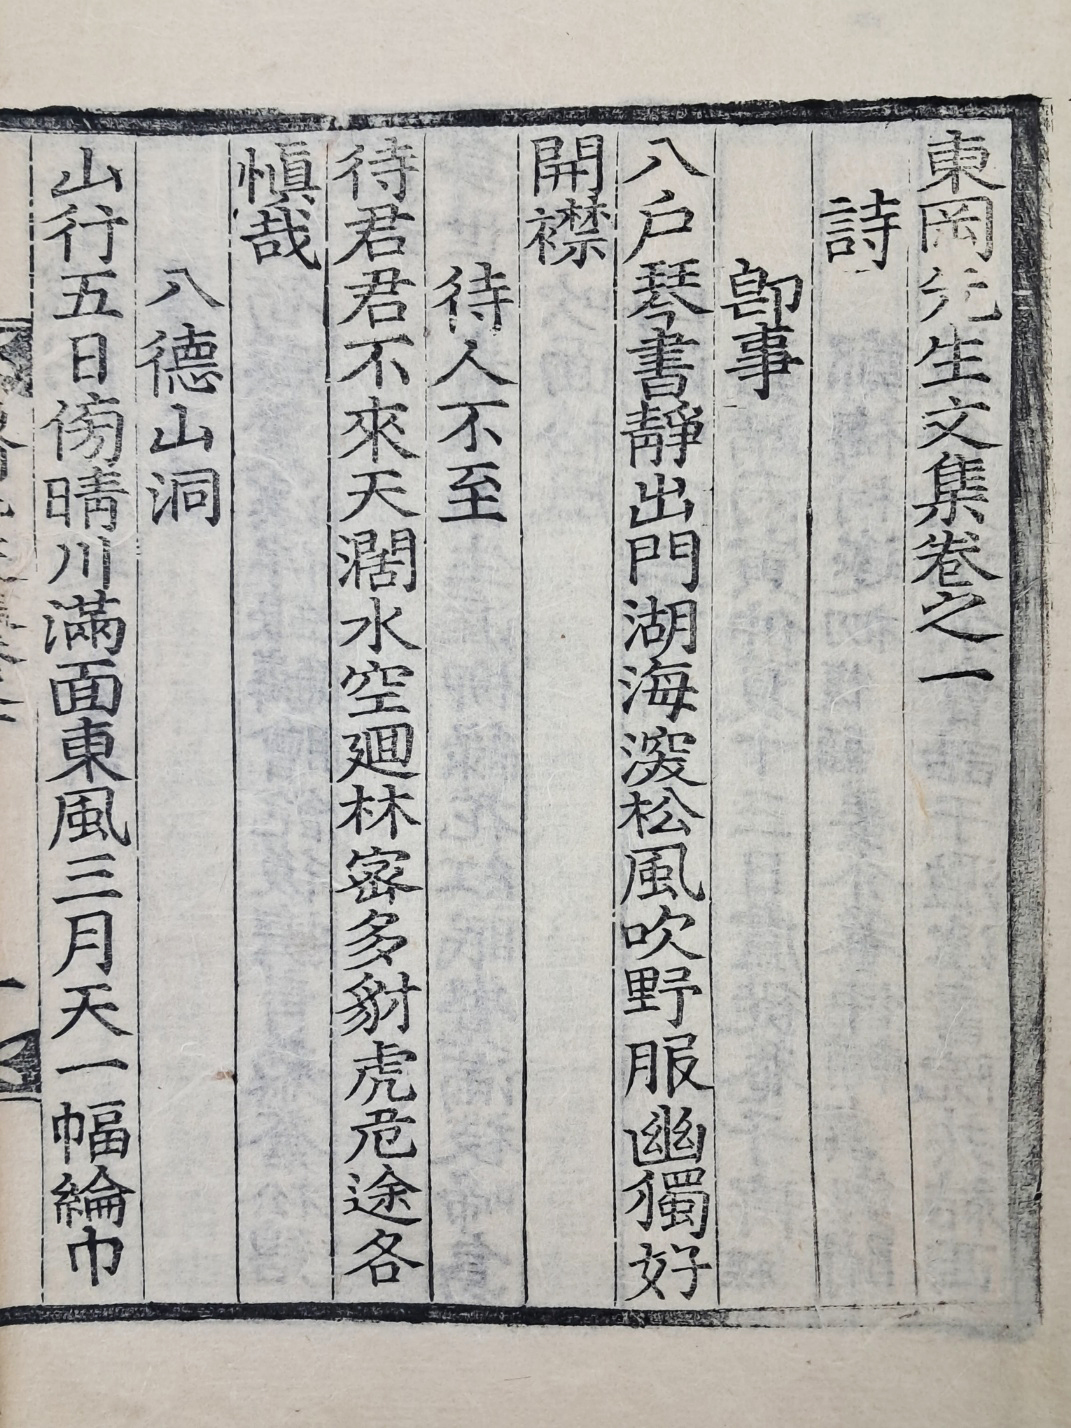 東岡先生文集卷之一
詩
卽事
八戶琴書靜出門湖海深松風吹野服幽獨好
開襟
待人不至
待君君不來天濶水空廻林密多豺虎危途各
愼哉
八德山洞
山行五日傍晴川滿面東風三月天一幅綸巾